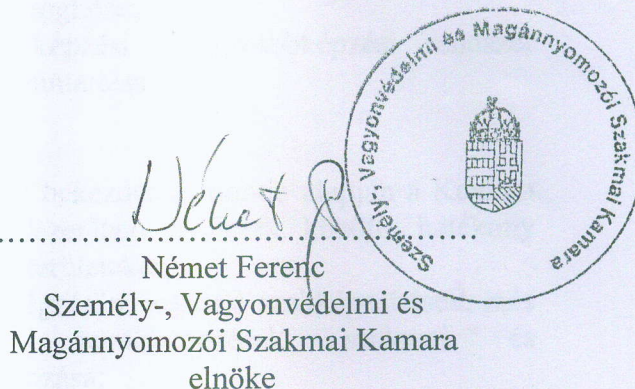 Személy-, Vagyonvédelmi és Magánnyomozói Szakmai Kamara
Német F
Német Ferenc
Személy-, Vagyonvédelmi és
Magánnyomozói Szakmai Kamara
elnöke